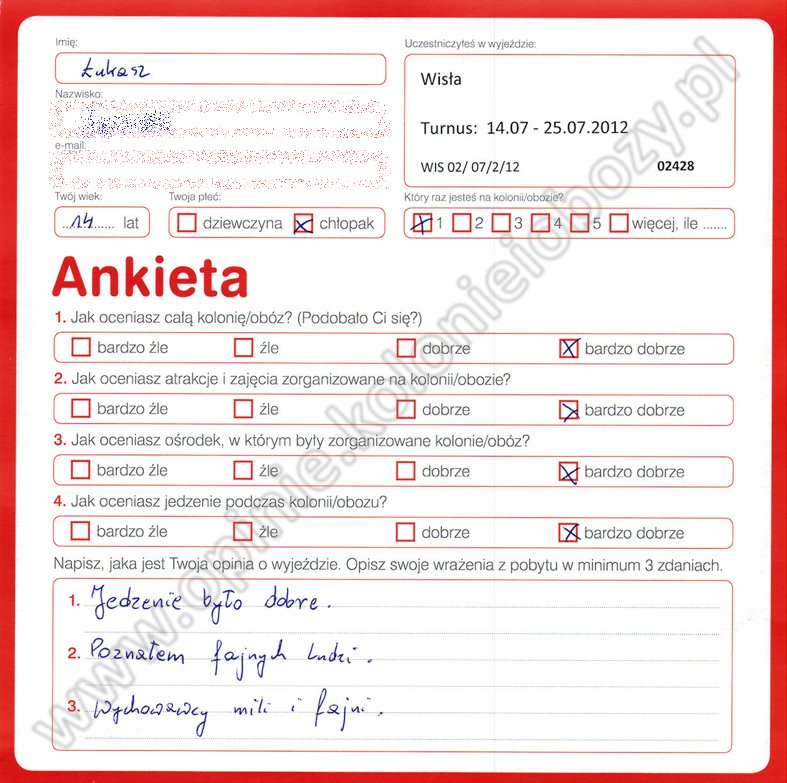 Imię:
Łukasz
Uczestniczyłeś w wyjeździe:
Wisła
Turnus: 14.07 - 25.07.2012
WIS 02/ 07/2/12 02428
Nazwisko:
e-mail:
Twój wiek:
14 lat
Twoja płeć:
dziewczyna chłopak
Który raz jesteś na kolonii/obozie?
1 2 3 4 5 więcej, ile .......
Ankieta
1. Jak oceniasz całą kolonię/obóz? (Podobało Ci się?)
bardzo źle źle dobrze bardzo dobrze
2. Jak oceniasz atrakcje i zajęcia zorganizowane na kolonii/obozie?
bardzo źle źle dobrze bardzo dobrze
3. Jak oceniasz ośrodek, w którym były zorganizowane kolonie/obóz?
bardzo źle źle dobrze bardzo dobrze
4. Jak oceniasz jedzenie podczas kolonii/obozu?
bardzo źle źle dobrze bardzo dobrze
Napisz, jaka jest Twoja opinia o wyjeździe. Opisz swoje wrażenia z pobytu w minimum 3 zdaniach.
1. Jedzenie było dobre.
2. Poznałem fajnych ludzi.
3. Wychowawcy mili i fajni.
www.opinie.kolonieiobozy.pl